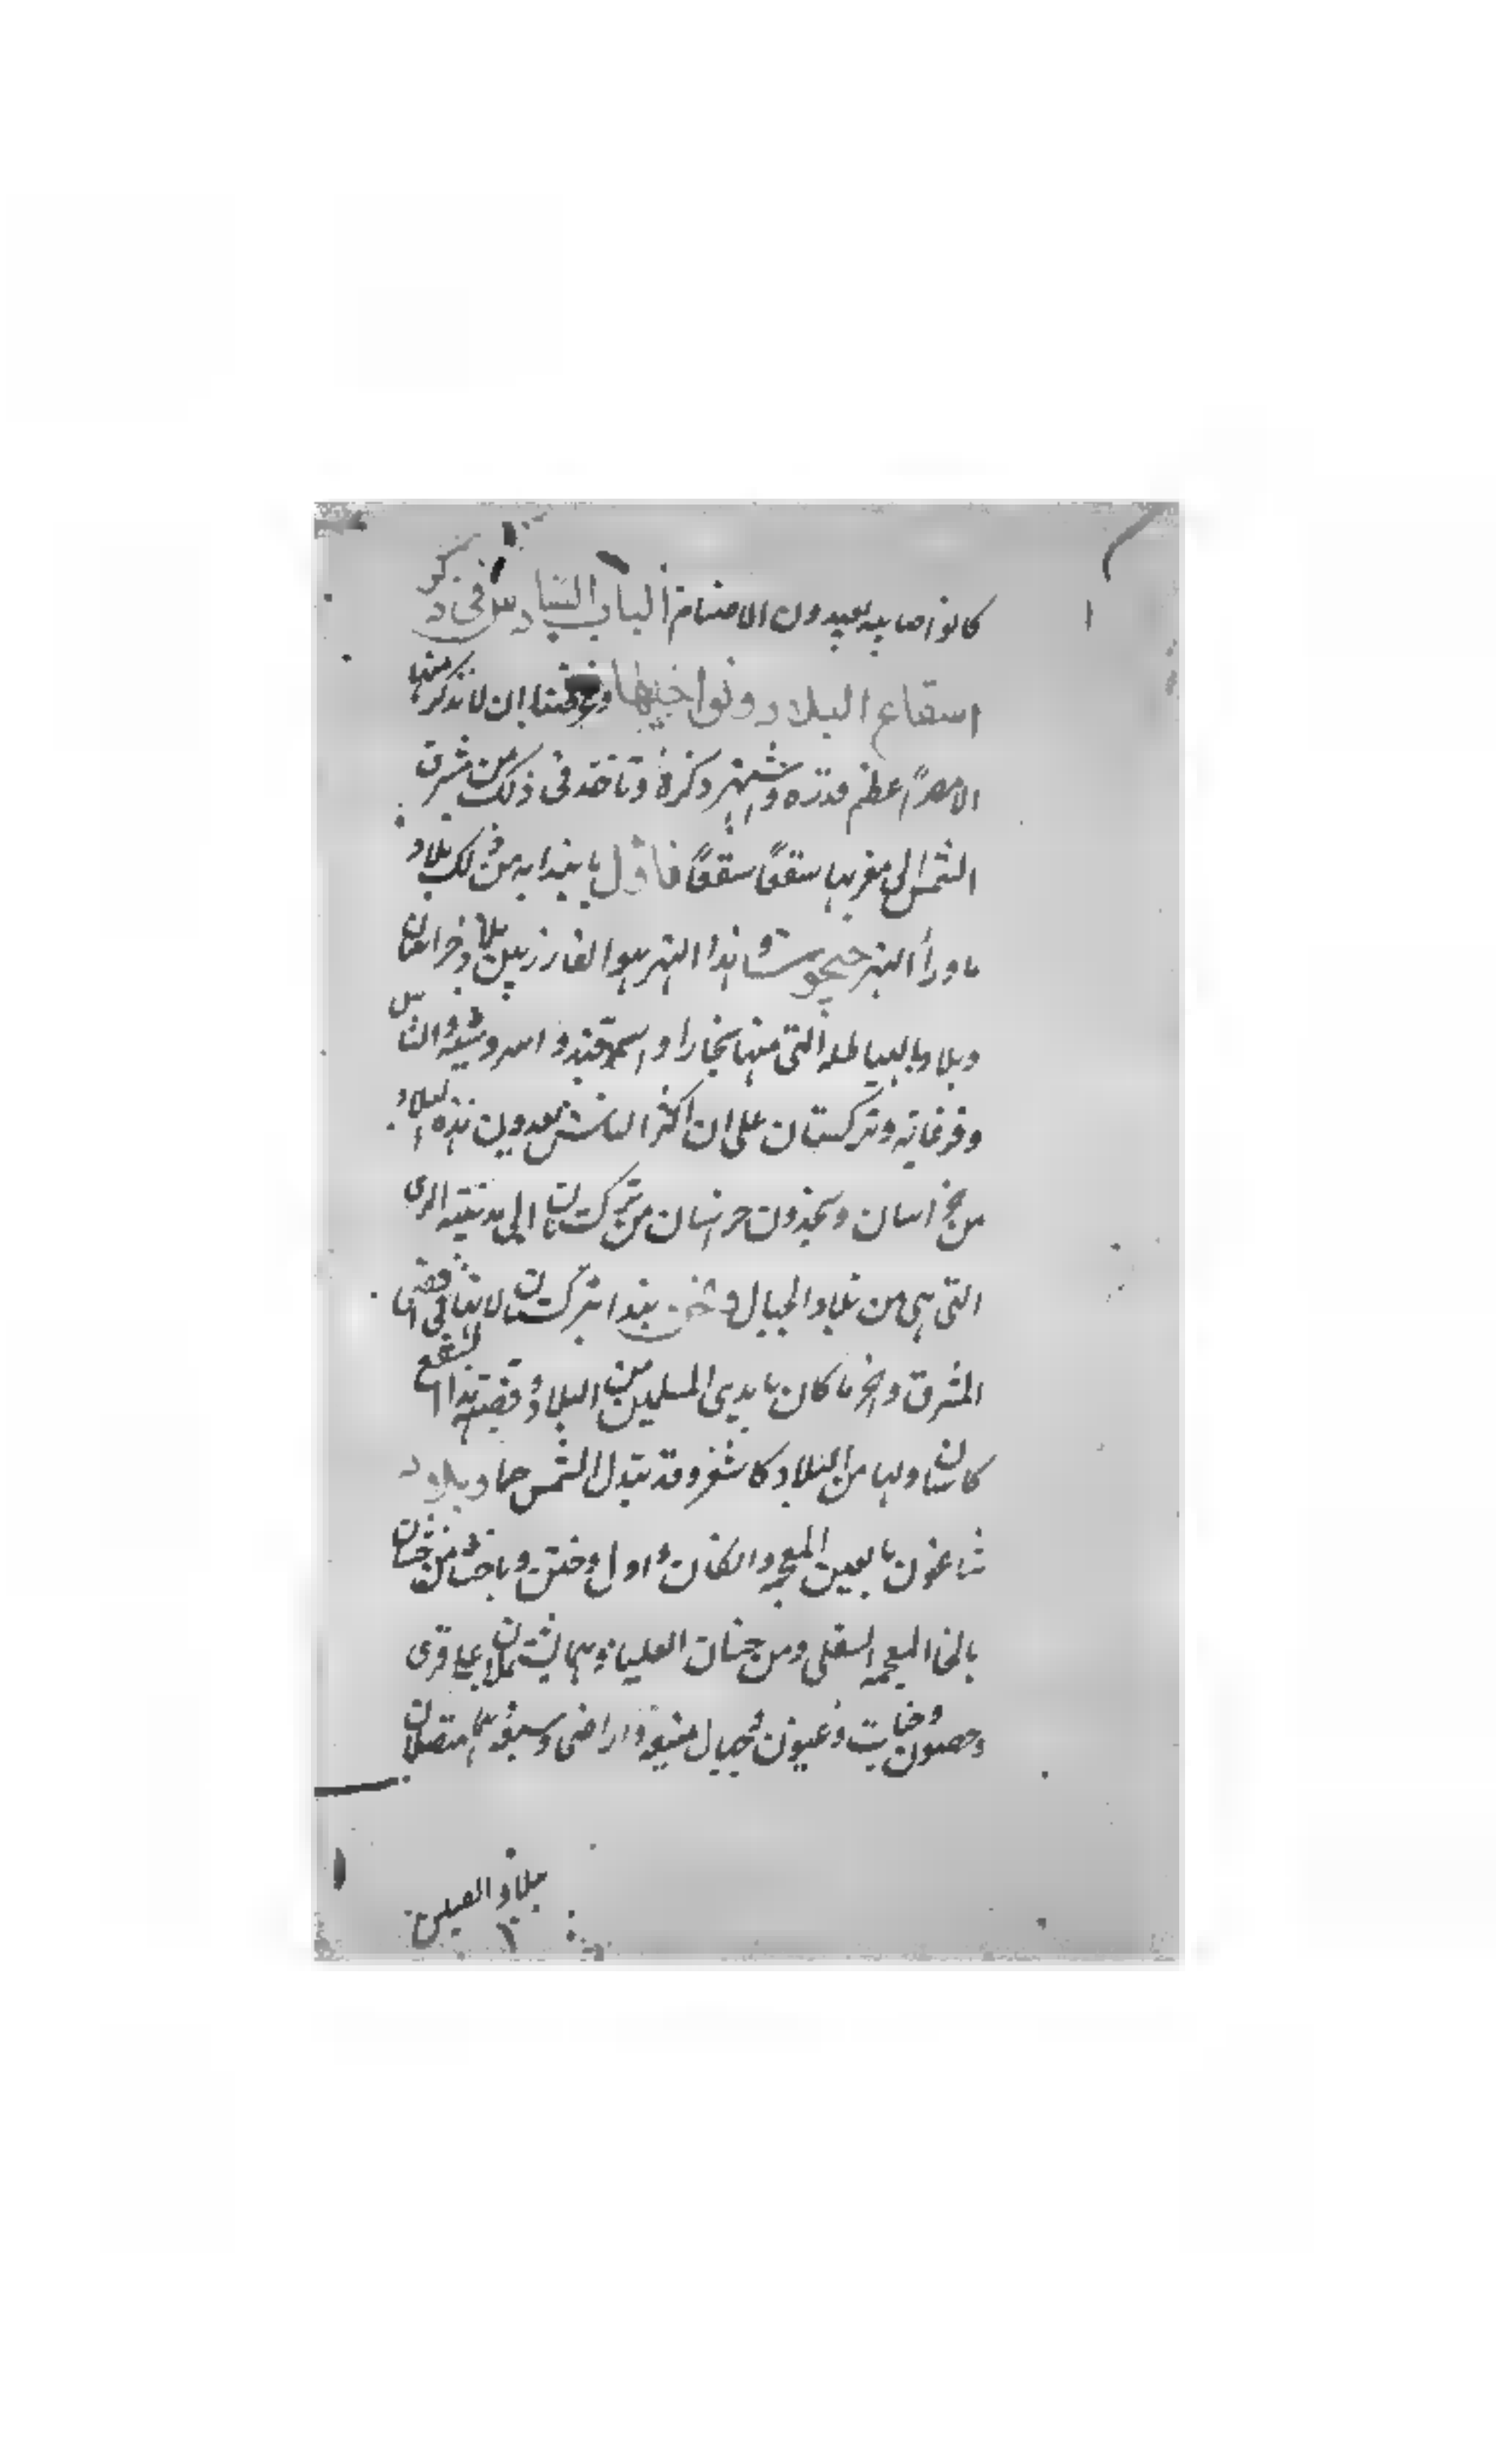 كانوا صابيه يعبدون الاصنام الباب السادس فى ذكر
اسقاع البلاد ونواحيها وغرضنا ان لا نذكر منها
الا مصراً عظم قدره واشتهر ذكره وناخذ فى ذلك من مشرق
الشمس الى مغربها سقعًا سقعًا فاول ما نبدا به من ذلك بلاد
ماوراء النهر جيحون وهذا النهر هو الفارز بين بلاد خراسان
وبلاد الهياطله التى منها بخارا و سمرقند و اسروشنه و الشاس
وفرغانه وتركستان على ان اكثر الناس يعدون هذه البلاد
من خراسان ويحدون خراسان من تركستان الى مدينه الرى
التى هى من بلاد الجبال و نحن نبدا بتركستان لانها فى اقصى
المشرق واخر ما كان بايدى المسلمين من البلاد وقصبته هذا السقع
كاسان ولها من البلاد كاشغر وقد تبدل الشمس جا وبلاد
شاغون بالعين المعجمه والكان و اول وختن و من جنان
بالخا المعجمه السفلى ومن جنان العليا وهما يشتملان على قرى
وحصون و وعيون وجبال منيعة واراضى وسيعة متصلان
ببلاد الصين